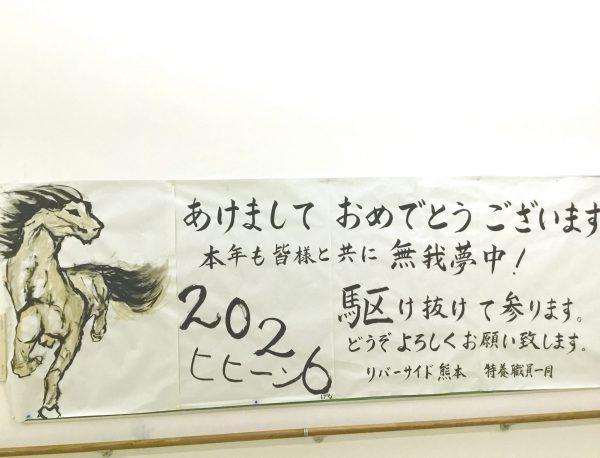 あけまして おめでとう ございます
本年も皆様と共に 無我夢中!
2026
ヒヒーン
駆け抜けて参ります。
どうぞよろしくお願い致します。
リバーサイド熊本 特養職員一同